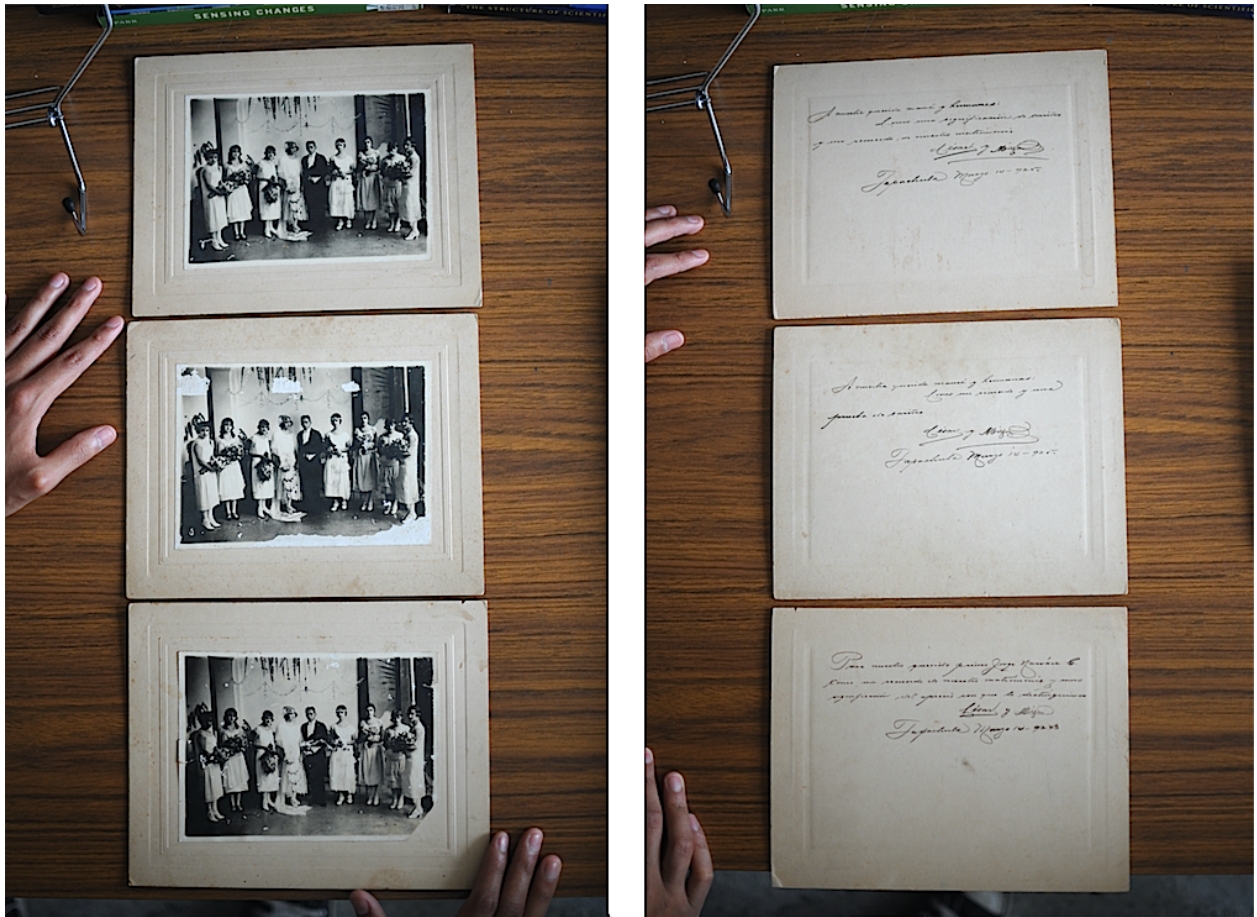 PARR
SENSING CHANGES
THE STRUCTURE OF SCIENTIF
PARR
SENSING CHANGES
THE STRUCTURE OF SCIENTIF
A nuestra querida mamá y hermanas:
Como una significación de cariño
y un recuerdo de nuestro matrimonio
César y
Tapachula Marzo
A nuestra querida mamá y hermanas:
Como un recuerdo y una
prueba de cariño
César y
Tapachula Marzo
Para nuestro querido primo Jorge
como un recuerdo de nuestro matrimonio y una
significación del aprecio con que le distinguimos
César y
Tapachula Marzo